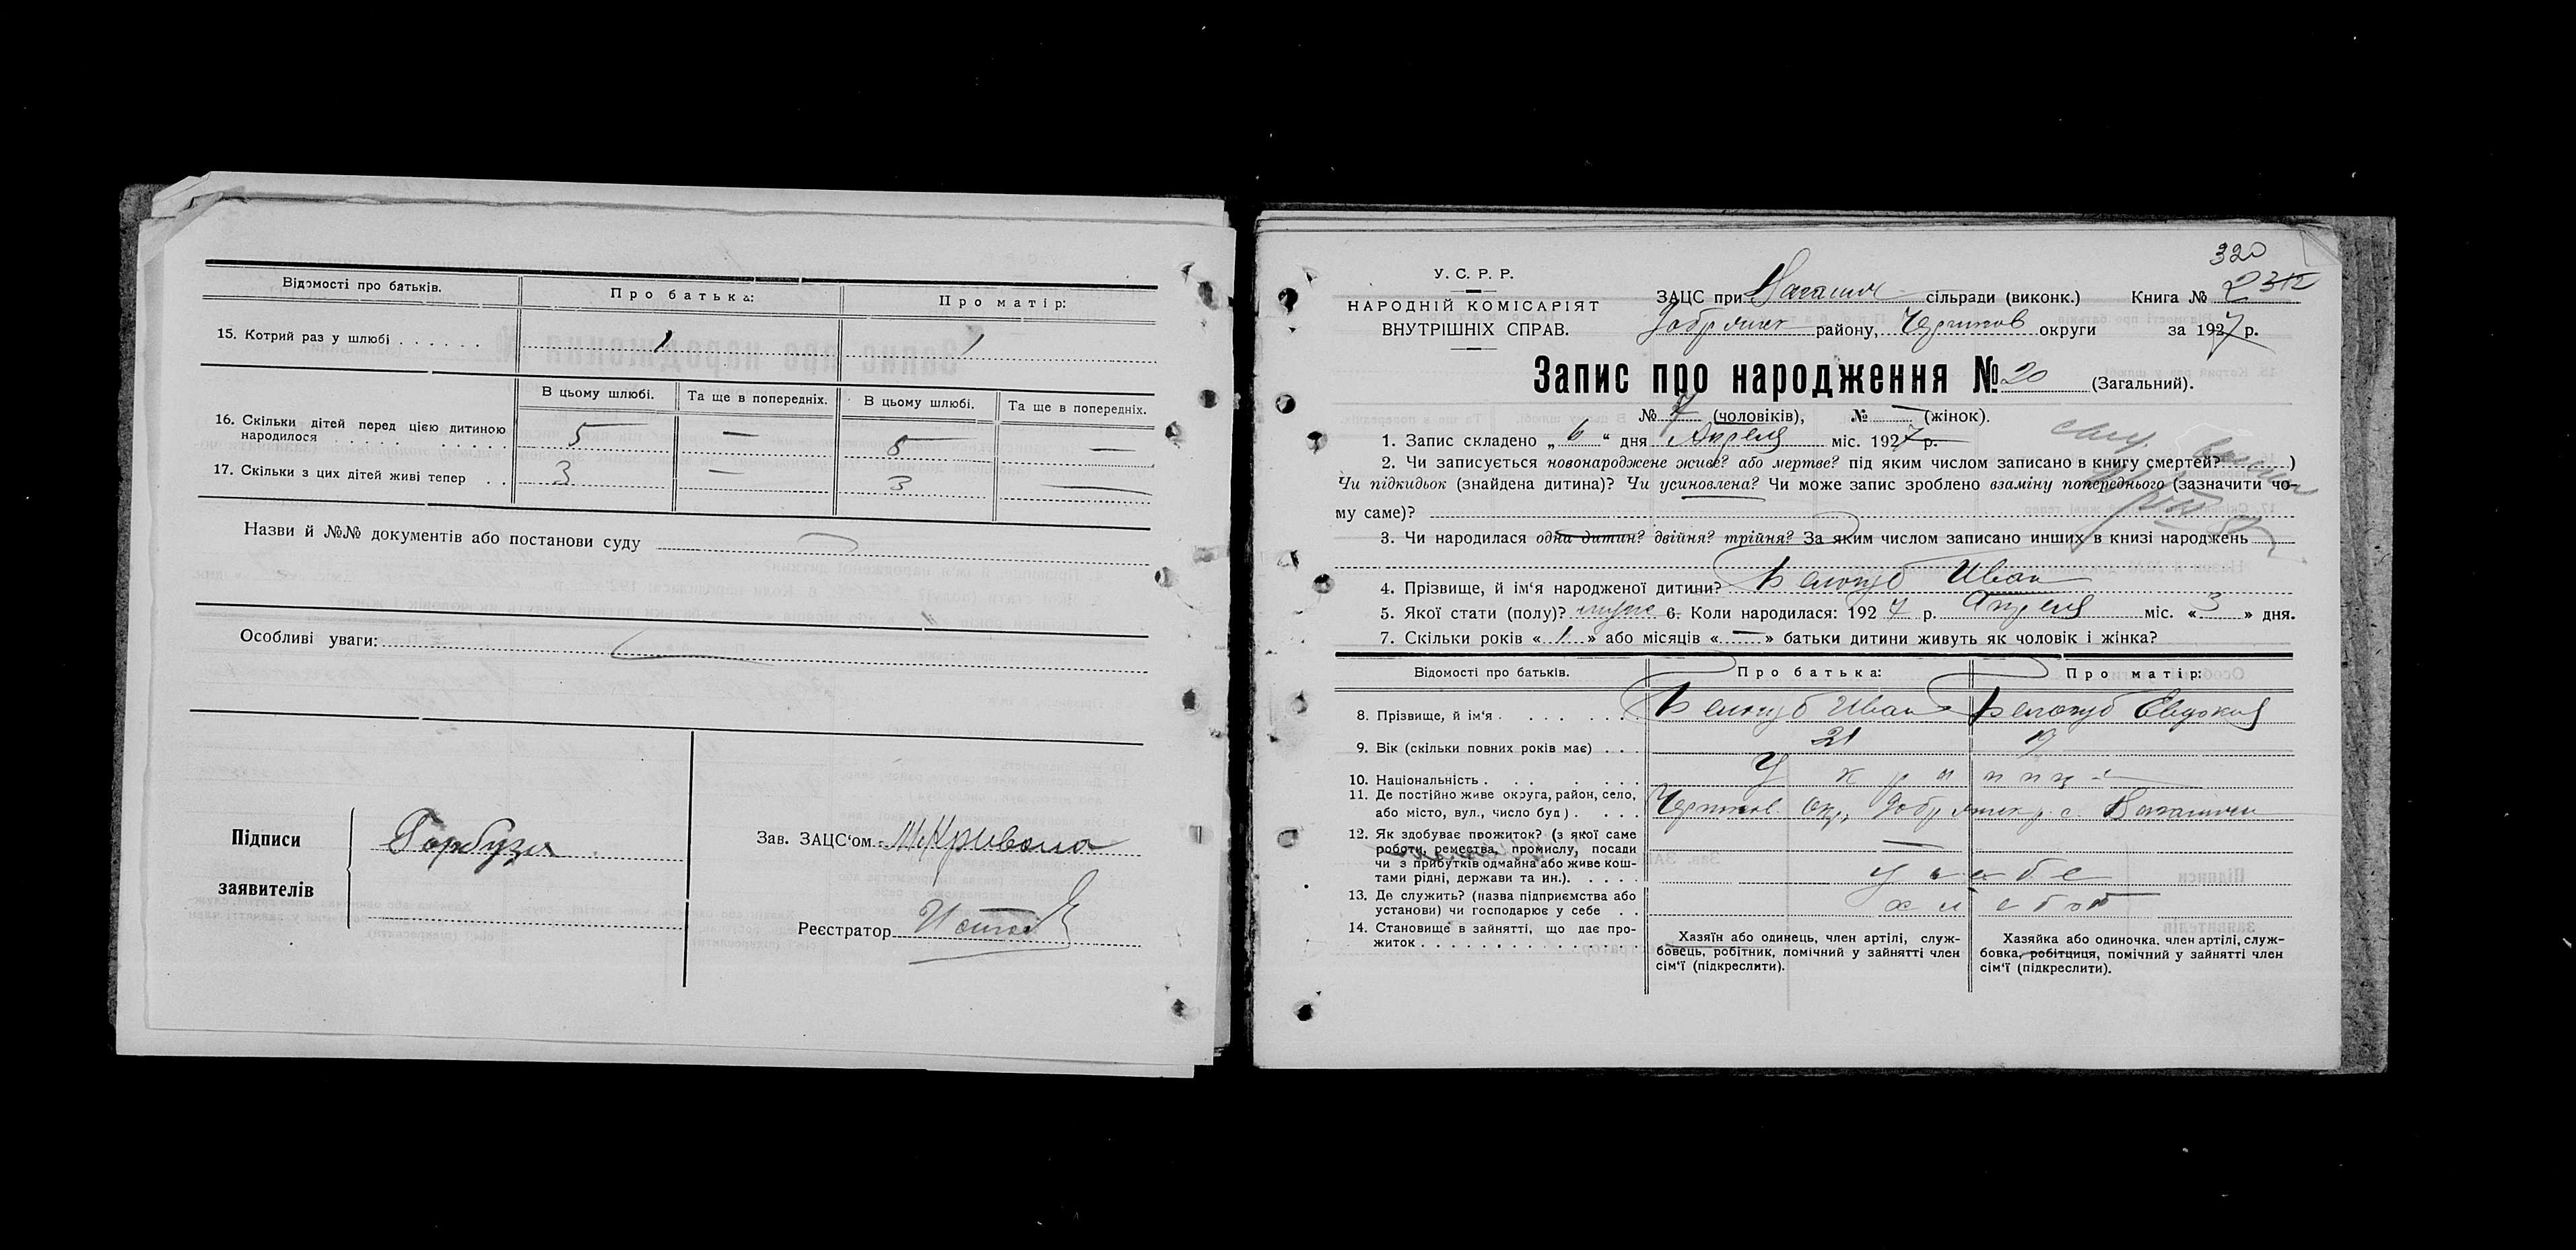 Відомості про батьків.
Про батька:
Про матір:
15. Котрий раз у шлюбі . . . . . .
1
1
В цьому шлюбі.
Та ще в попередніх.
В цьому шлюбі.
Та ще в попередніх.
16. Скільки дітей перед цією дитиною
народилося . . . . . . . . . .
5 — 5 —
17. Скільки з цих дітей живі тепер . .
3 — 3 —
Назви й №№ документів або постанови суду —
Особливі уваги: —
Підписи
заявителів
Горбуза
Зав. ЗАЦС‘ом
Реєстратор
320
У. С. Р. Р.
НАРОДНІЙ КОМІСАРІЯТ
ВНУТРІШНІХ СПРАВ.
ЗАЦС при сільради (виконк.) Книга №
Добрянск району, Чернигов округи за 1927 р.
Запис про народження № 20 (Загальний).
№ 7 (чоловіків), № — (жінок).
1. Запис складено „ 6 “ дня Апреля міс. 1927 р.
2. Чи записується новонароджене живе? або мертве? під яким числом записано в книгу смертей? )
Чи підкидьок (знайдена дитина)? Чи усиновлена? Чи може запис зроблено взаміну попереднього (зазначити чо-
му саме)?
3. Чи народилася одна дитин? двійня? трійня? За яким числом записано инших в книзі народжень
4. Прізвище, й ім‘я народженої дитини? Белозуб Иван
5. Якої стати (полу)? муж 6. Коли народилася: 1927 р. Апреля міс. « 3 » дня.
7. Скільки років « 1 » або місяців « — » батьки дитини живуть як чоловік і жінка?
Відомості про батьків.
Про батька:
Про матір:
8. Прізвище, й ім‘я . . . . . . .
Белозуб Иван
Белозуб Евдокия
9. Вік (скільки повних років має) . . .
21
19
10. Національність . . . . . . .
Украинці
11. Де постійно живе округа, район, село,
або місто, вул., число буд) . . . .
12. Як здобуває прожиток? (з якої саме
роботи, ремества, промислу, посади
чи з прибутків одмайна або живе кош-
тами рідні, держави та ин.). . . . .
—
13. Де служить? (назва підприємства або
установи) чи господарює у себе . .
у себе
14. Становище в зайнятті, що дає про-
житок . . . . . . . . . . . . .
хлебоб
Хазяїн або одинець, член артілі, служ-
бовець, робітник, помічний у зайнятті член
сім‘ї (підкреслити).
Хазяйка або одиночка. член артілі, служ-
бовка, робітниця, помічний у зайнятті член
сім‘ї (підкреслити).